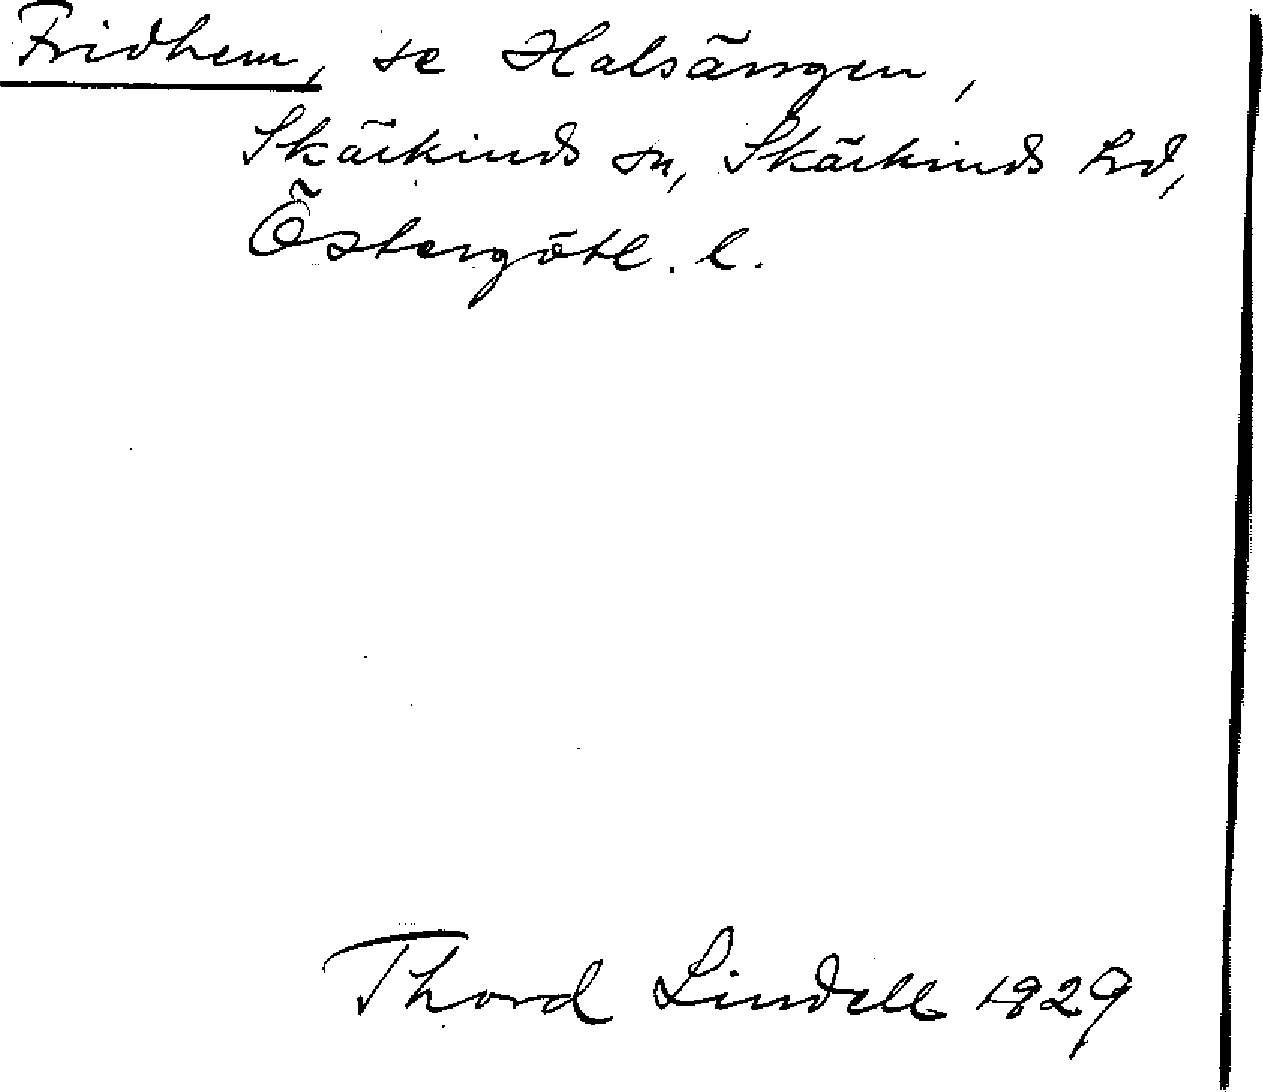 Fridhem, se Halsängen,
Skärkinds sn, Skärkinds hd,
Östergötl. l.
Thord Lindell 1929